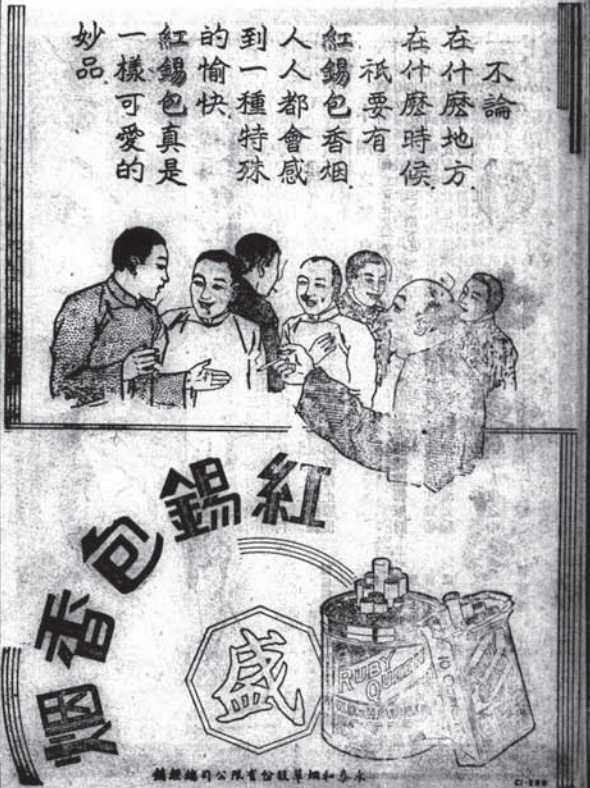 不論
在什麽地方.
在什麽時候.
祇要有
紅錫包香烟.
人人都會感
到一種特殊
的愉快.
紅錫包真是
一樣可愛的
妙品.
紅錫包香烟
盛
RUBY
QUEEN
永泰和烟草股份有限公司總經銷